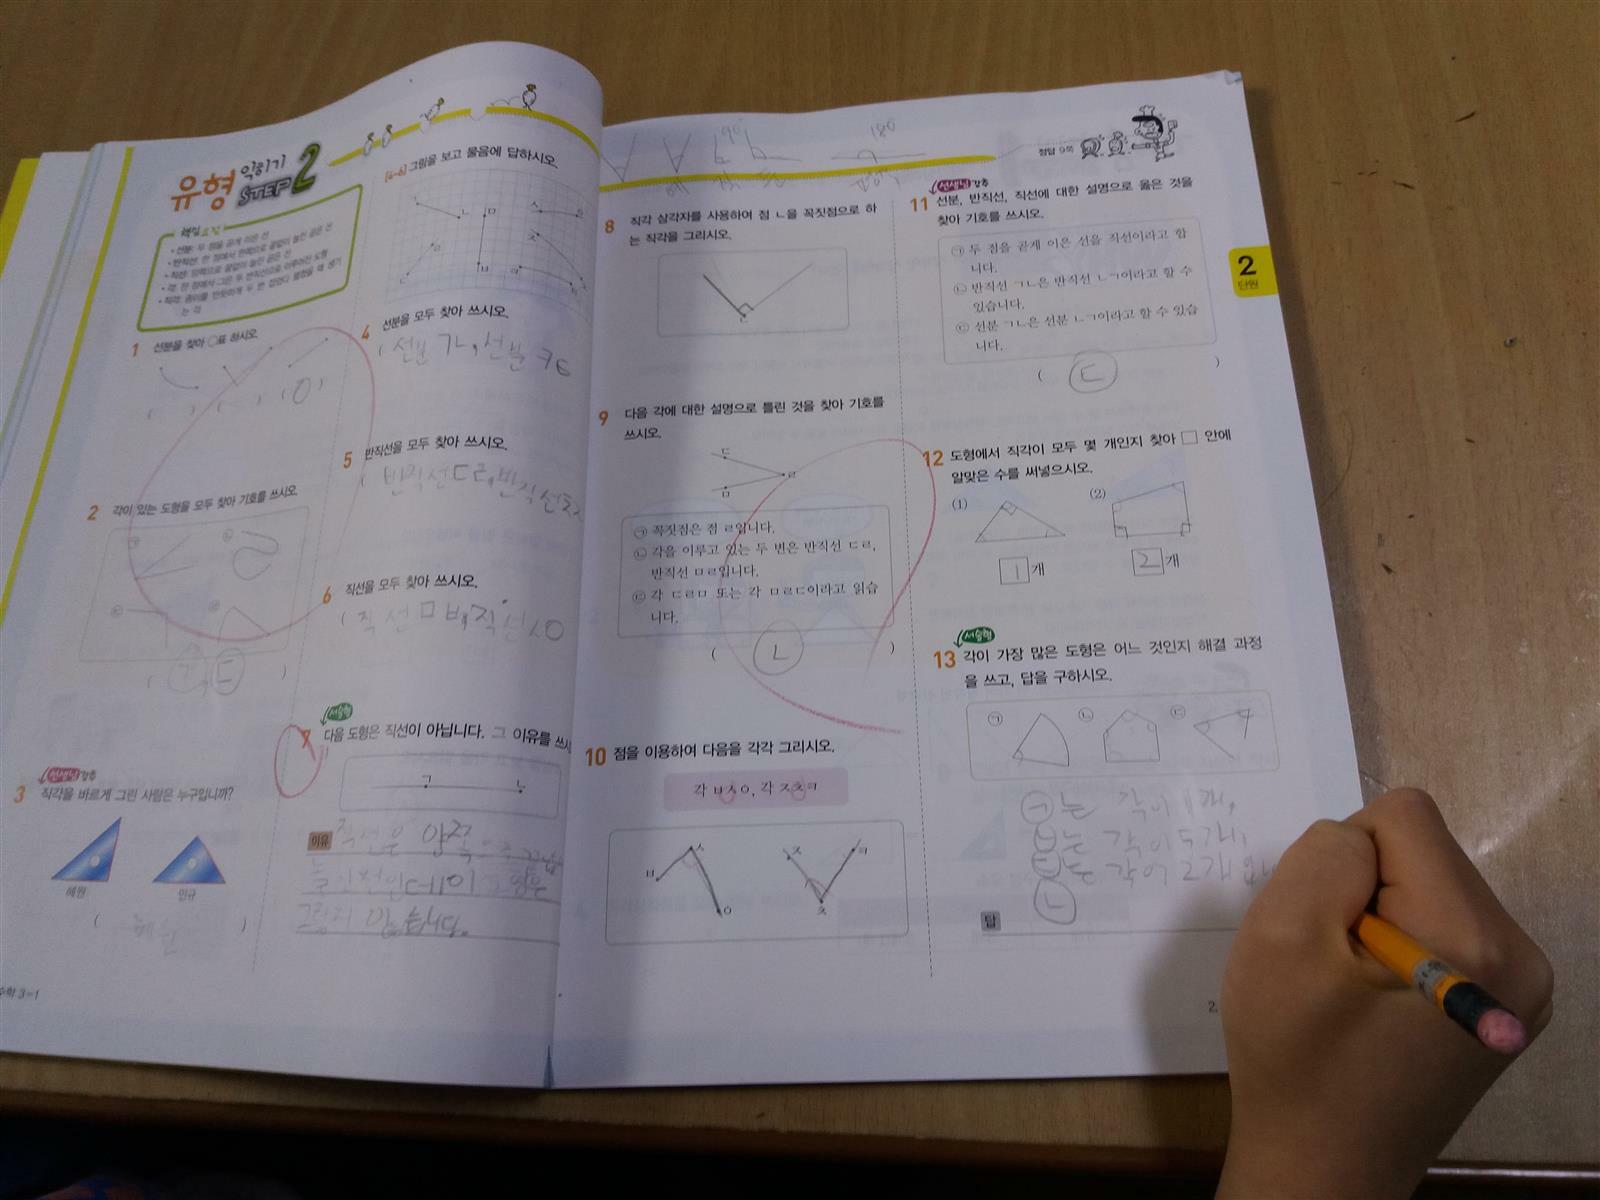 유형 익히기
STEP 2
핵심 요점
• 선분: 두 점을 곧게 이은 선
• 반직선: 한 점에서 한쪽으로 끝없이 늘인 곧은 선
• 직선: 양쪽으로 끝없이 늘인 곧은 선
• 각: 한 점에서 그은 두 반직선으로 이루어진 도형
• 직각: 종이를 반듯하게 두 번 접었다 펼쳤을 때 생기
는 각
1 선분을 찾아 ○표 하시오.
( ) ( ) (○)
2 각이 있는 도형을 모두 찾아 기호를 쓰시오.
3 선생님 강추
직각을 바르게 그린 사람은 누구입니까?
혜원 민규
( 혜원 )
수학 3-1
[4~6] 그림을 보고 물음에 답하시오.
4 선분을 모두 찾아 쓰시오.
5 반직선을 모두 찾아 쓰시오.
6 직선을 모두 찾아 쓰시오.
( 직선 ㅁㅂ, 직선 ㅅㅇ
서술형
7 다음 도형은 직선이 아닙니다. 그 이유를 쓰시
ㄱ ㄴ
이유 직선은 양쪽으로
그렇지 않습니다.
90
180
정답 9쪽
8 직각 삼각자를 사용하여 점 ㄴ을 꼭짓점으로 하
는 직각을 그리시오.
ㄴ
9 다음 각에 대한 설명으로 틀린 것을 찾아 기호를
쓰시오.
ㄷ
ㄹ
ㅁ
㉠ 꼭짓점은 점 ㄹ입니다.
㉡ 각을 이루고 있는 두 변은 반직선 ㄷㄹ,
반직선 ㅁㄹ입니다.
㉢ 각 ㄷㄹㅁ 또는 각 ㅁㄹㄷ이라고 읽습
니다.
( ㉡ )
10 점을 이용하여 다음을 각각 그리시오.
각 ㅂㅅㅇ, 각 ㅈㅊㅋ
ㅂ ㅅ ㅇ ㅈ ㅊ ㅋ
선생님 강추
11 선분, 반직선, 직선에 대한 설명으로 옳은 것을
찾아 기호를 쓰시오.
㉠ 두 점을 곧게 이은 선을 직선이라고 합
니다.
㉡ 반직선 ㄱㄴ은 반직선 ㄴㄱ이라고 할 수
있습니다.
㉢ 선분 ㄱㄴ은 선분 ㄴㄱ이라고 할 수 있습
니다.
( ㉢ )
2
단원
12 도형에서 직각이 모두 몇 개인지 찾아 □ 안에
알맞은 수를 써넣으시오.
(1) (2)
1 개 2 개
서술형
13 각이 가장 많은 도형은 어느 것인지 해결 과정
을 쓰고, 답을 구하시오.
㉠ ㉡ ㉢
㉠는 각이 1개,
㉡는 각이 5개,
㉢는 각이 2개
답 ㉡
2.